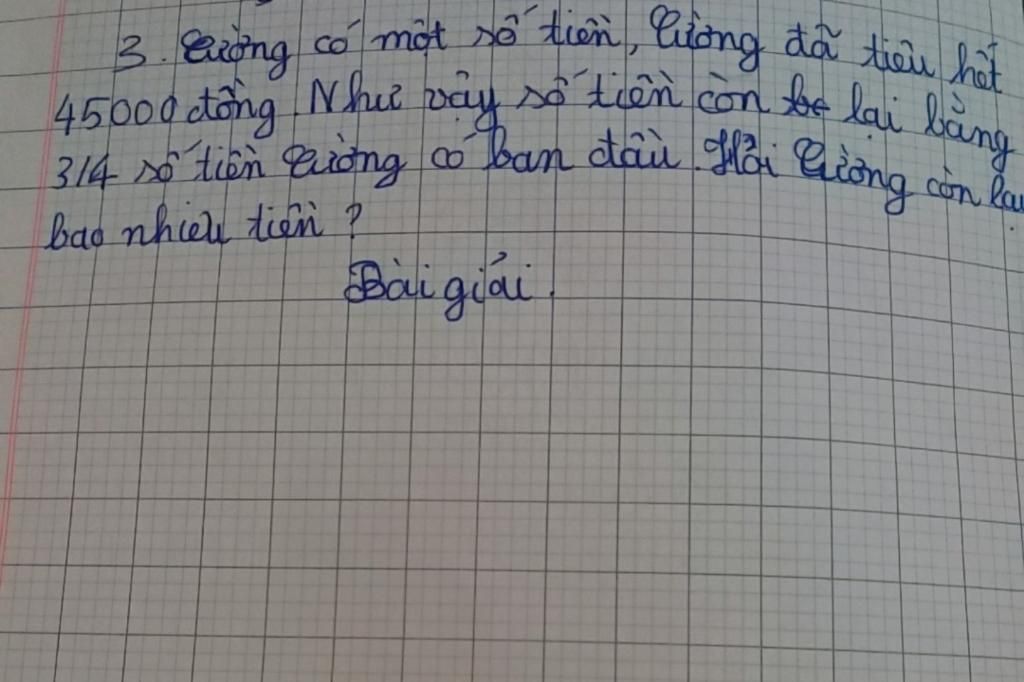 3. Cường có một số tiền, Cường đã tiêu hết
45000 đồng. Như vậy số tiền còn lại bằng
3/4 số tiền Cường có ban đầu. Hỏi Cường còn lại
bao nhiêu tiền ?
Bài giải.